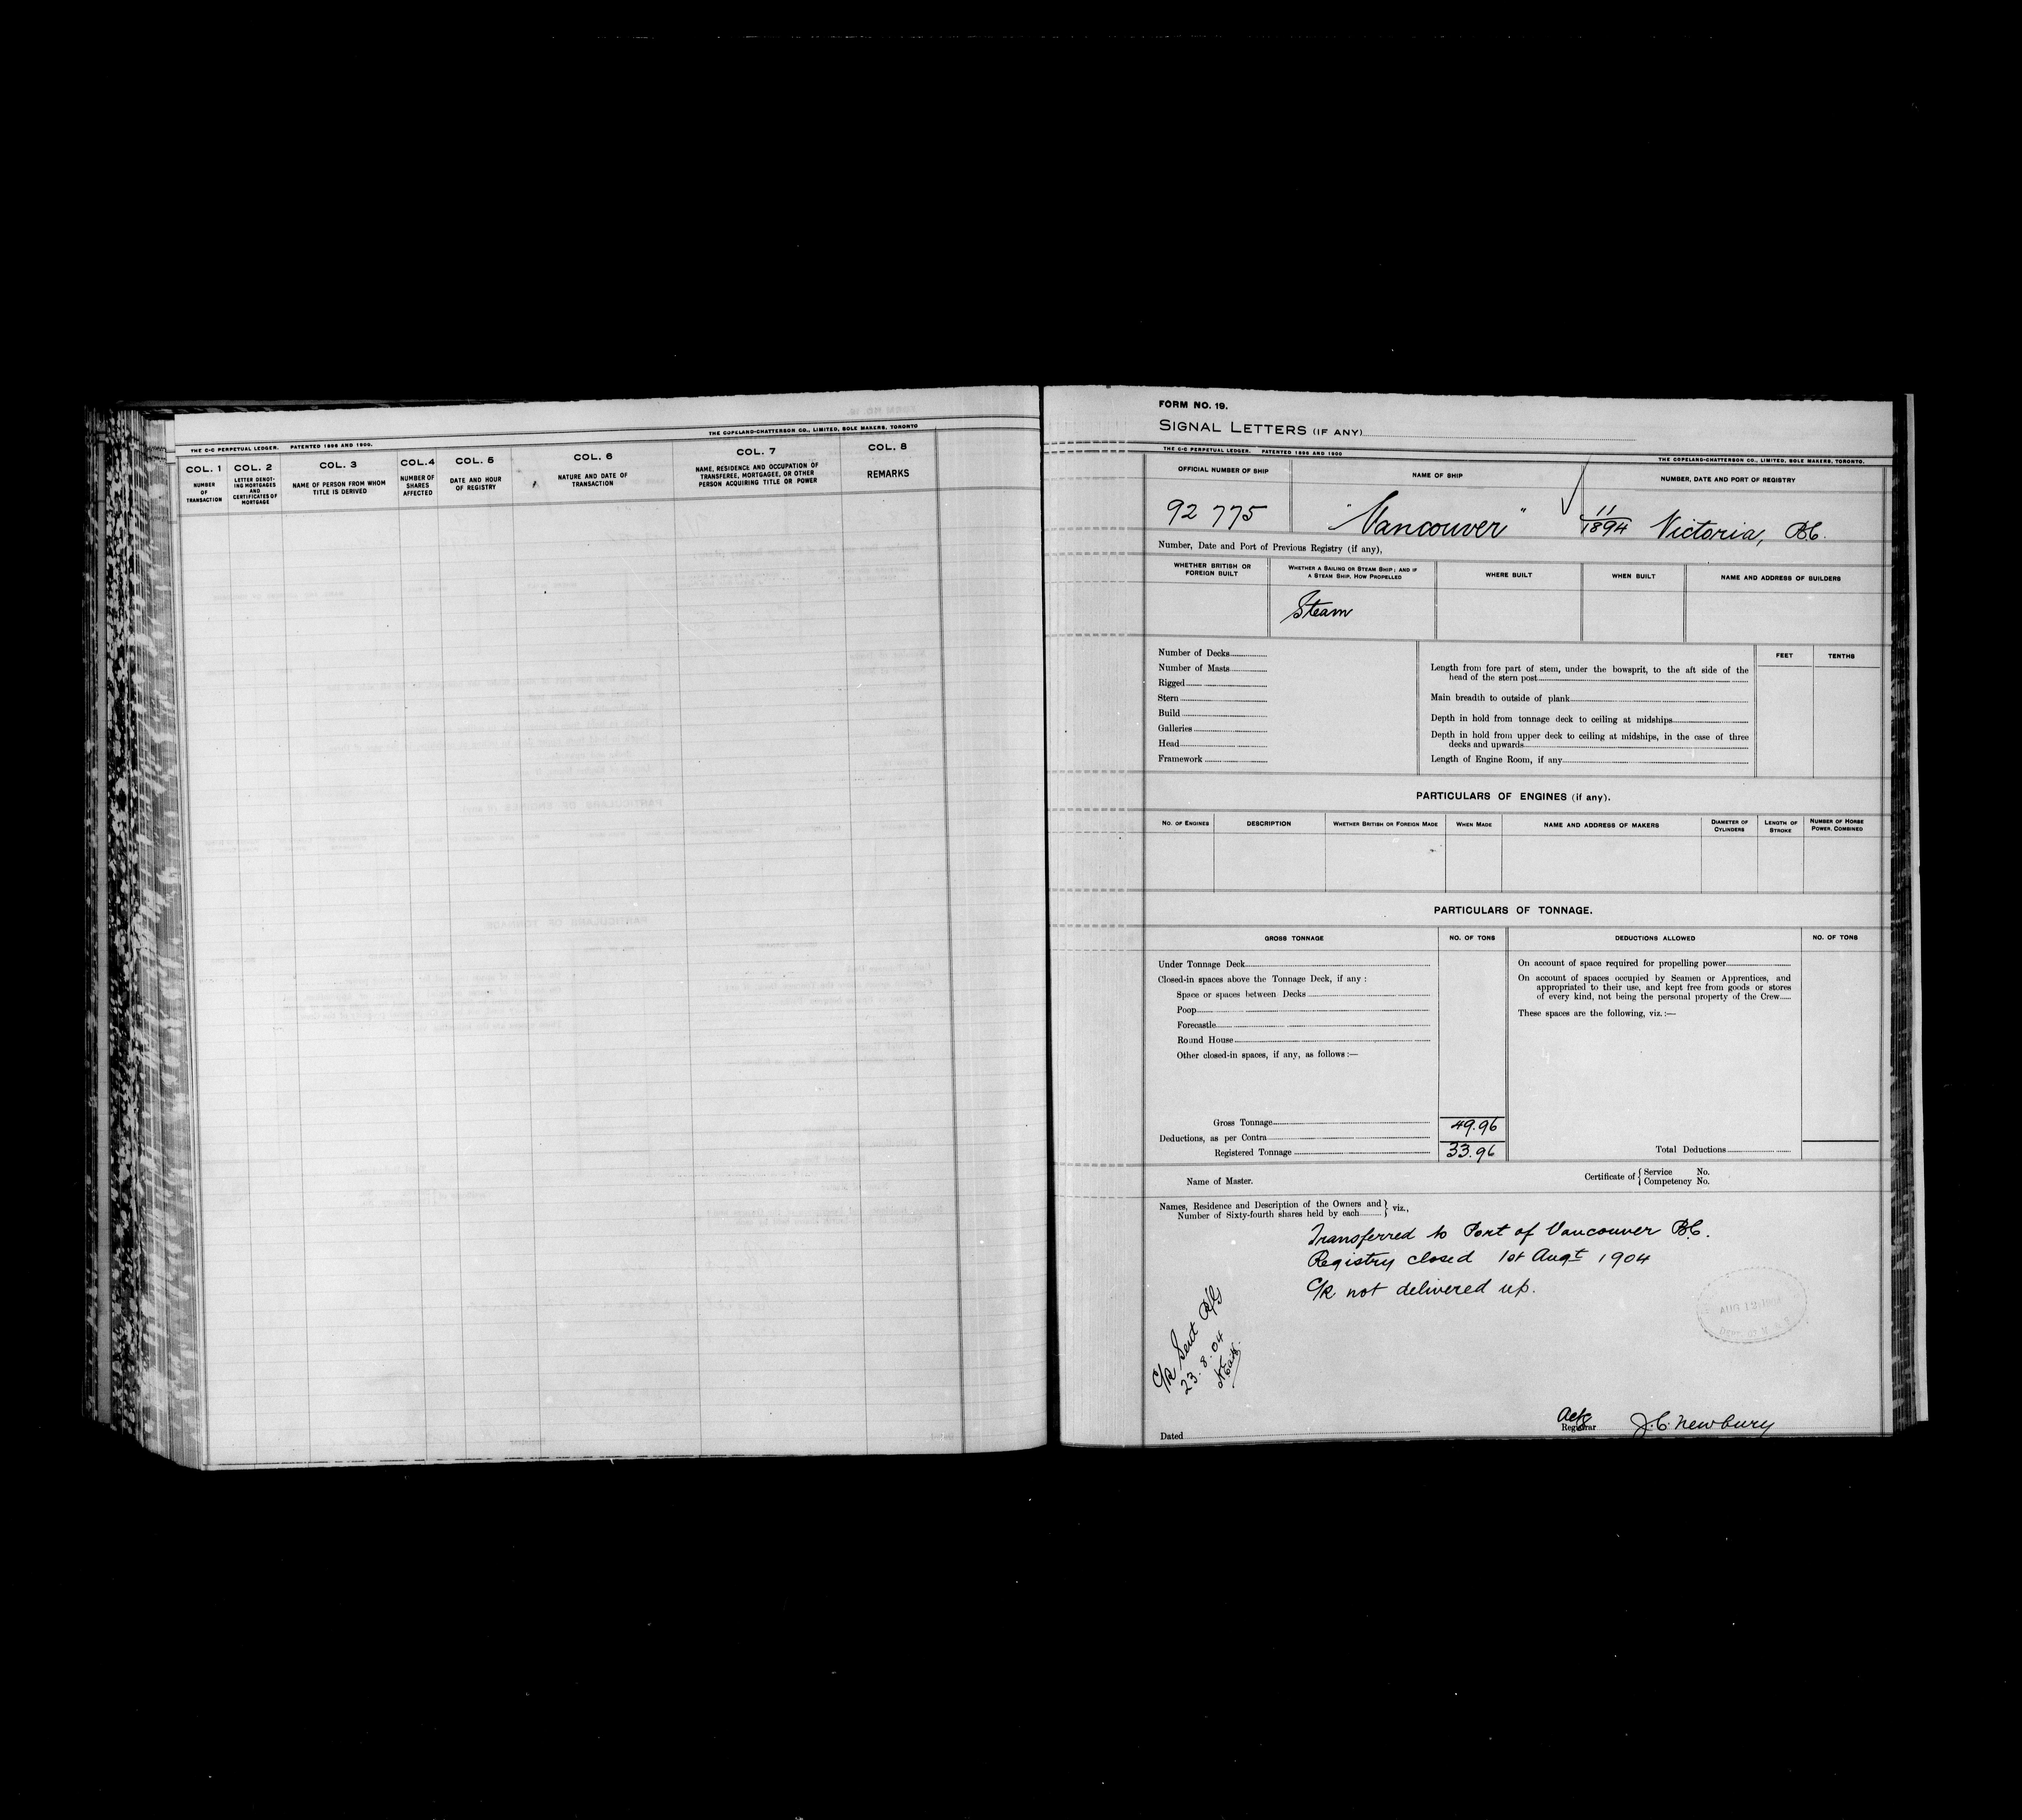 THE C-C PERPETUAL LEDGER. PATENTED 1896 AND 1900. THE COPELAND-CHATTERSON CO., LIMITED, SOLE MAKERS, TORONTO
COL. 1 COL. 2 COL. 3 COL. 4 COL. 5 COL. 6 COL. 7 COL. 8
NUMBER OF TRANSACTION
LETTER DENOTING MORTGAGES AND CERTIFICATES OF MORTGAGE
NAME OF PERSON FROM WHOM TITLE IS DERIVED
NUMBER OF SHARES AFFECTED
DATE AND HOUR OF REGISTRY
NATURE AND DATE OF TRANSACTION
NAME, RESIDENCE AND OCCUPATION OF TRANSFEREE, MORTGAGEE, OR OTHER PERSON ACQUIRING TITLE OR POWER
REMARKS
FORM NO. 19.
SIGNAL LETTERS (IF ANY)
THE C-C PERPETUAL LEDGER. PATENTED 1896 AND 1900 THE COPELAND-CHATTERSON CO., LIMITED, SOLE MAKERS, TORONTO.
OFFICIAL NUMBER OF SHIP NAME OF SHIP NUMBER, DATE AND PORT OF REGISTRY
92 775 "Vancouver" 11/1894 Victoria, B.C.
Number, Date and Port of Previous Registry (if any),
WHETHER BRITISH OR FOREIGN BUILT
WHETHER A SAILING OR STEAM SHIP; AND IF A STEAM SHIP, HOW PROPELLED
WHERE BUILT
WHEN BUILT
NAME AND ADDRESS OF BUILDERS
Steam
Number of Decks
Number of Masts
Rigged
Stern
Build
Galleries
Head
Framework
FEET TENTHS
Length from fore part of stem, under the bowsprit, to the aft side of the
head of the stern post
Main breadth to outside of plank
Depth in hold from tonnage deck to ceiling at midships
Depth in hold from upper deck to ceiling at midships, in the case of three
decks and upwards
Length of Engine Room, if any
PARTICULARS OF ENGINES (if any).
NO. OF ENGINES DESCRIPTION WHETHER BRITISH OR FOREIGN MADE WHEN MADE NAME AND ADDRESS OF MAKERS DIAMETER OF CYLINDERS LENGTH OF STROKE NUMBER OF HORSE POWER, COMBINED
PARTICULARS OF TONNAGE.
GROSS TONNAGE NO. OF TONS DEDUCTIONS ALLOWED NO. OF TONS
Under Tonnage Deck
Closed-in spaces above the Tonnage Deck, if any :
Space or spaces between Decks
Poop
Forecastle
Round House
Other closed-in spaces, if any, as follows :—
Gross Tonnage 49.96
Deductions, as per Contra
Registered Tonnage 33.96
On account of space required for propelling power
On account of spaces occupied by Seamen or Apprentices, and
appropriated to their use, and kept free from goods or stores
of every kind, not being the personal property of the Crew
These spaces are the following, viz. :—
Total Deductions
Name of Master. Certificate of { Service No.
Competency No.
Names, Residence and Description of the Owners and
Number of Sixty-fourth shares held by each } viz.,
Transferred to Port of Vancouver B.C.
Registry closed 1st Augt 1904
C/R not delivered up.
C/R Sent R/G
23.8.04
AUG 12 1904
Dated
Actg
Registrar J. C. Newbury